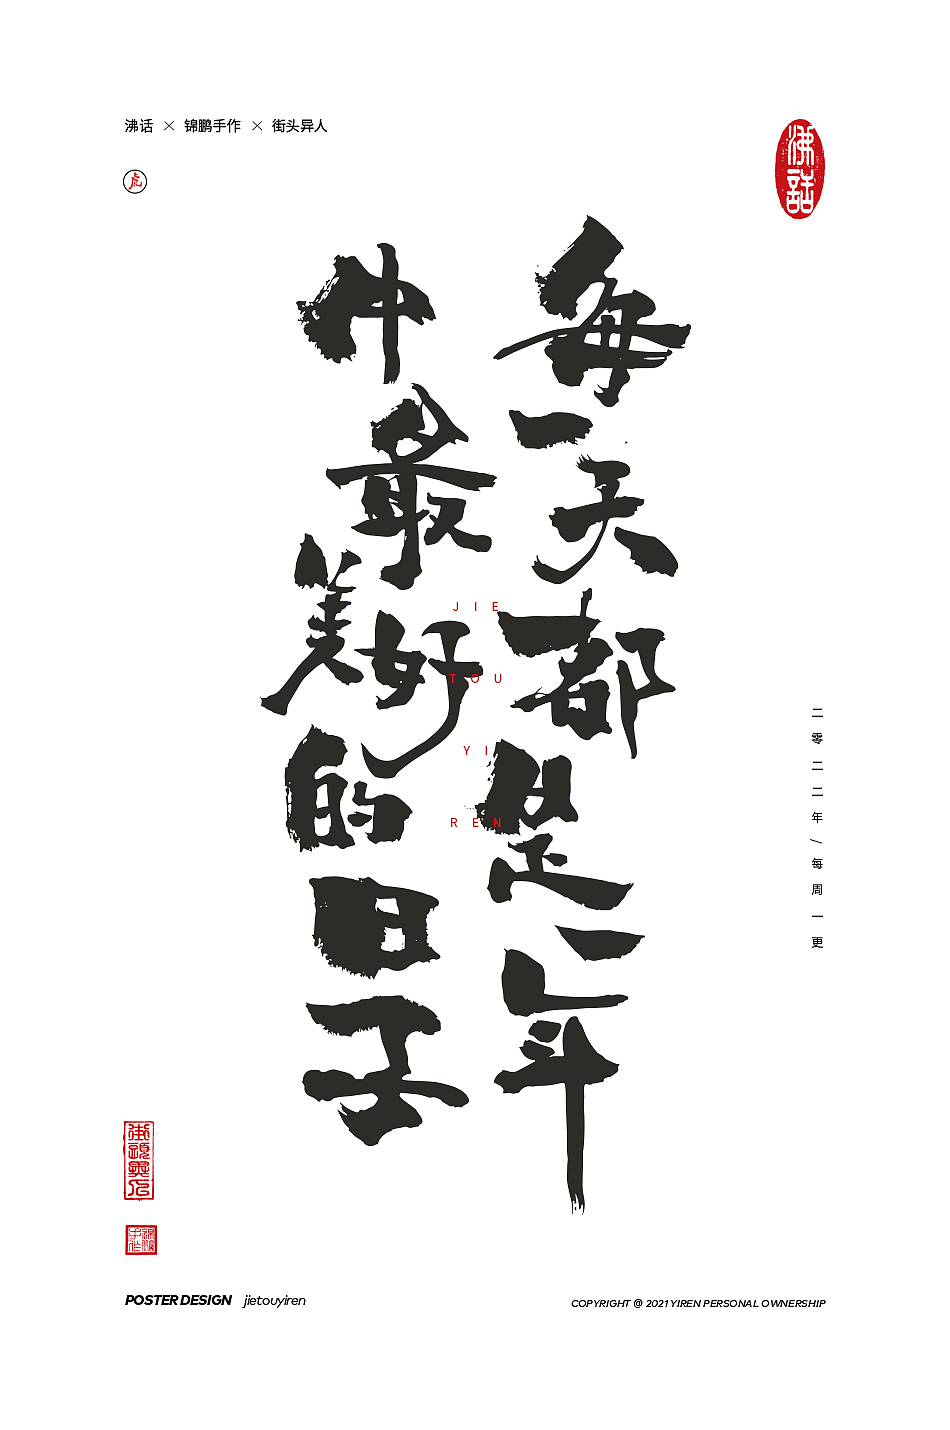 沸话 × 锦鹏手作 × 街头异人
虎
沸話
每一天都是一年
中最美好的日子
JIE
TOU
YI
REN
二零二二年/每周一更
街頭異人
POSTER DESIGN jietouyiren
COPYRIGHT @ 2021 YIREN PERSONAL OWNERSHIP